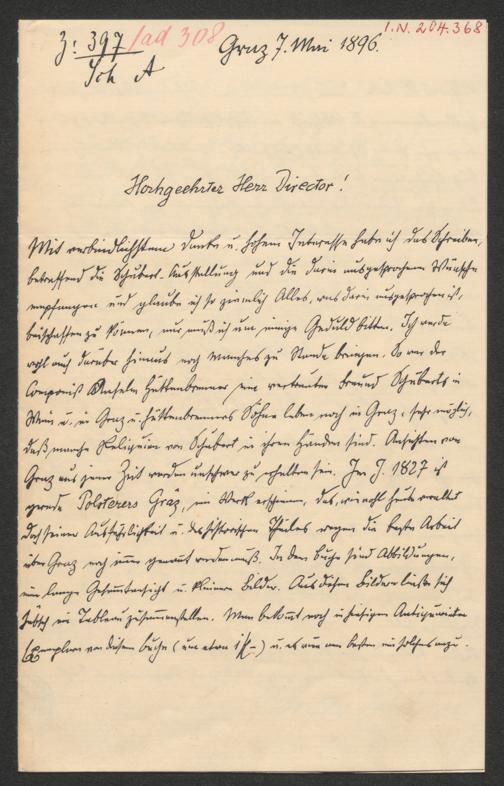 I.N. 204.368
Z: 397 / ad 308
Sch A
Graz 7. Mai 1896.
Hochgeehrter Herr Director!
Mit verbindlichstem Danke u. hohem Interesse habe ich das Schreiben,
betreffend die Schubert-Ausstellung und die darin ausgesprochenen Wünsche
empfangen und glaube ich so ziemlich Alles, was darin ausgesprochen ist,
beischaffen zu können, nur muß ich um einige Geduld bitten. Ich werde
wohl auch darüber hinaus noch Manches zu Stande bringen. So war der
Componist Anselm Hüttenbrenner ein vertrauter Freund Schuberts in
Wien u. in Graz u. Hüttenbrenners Söhne leben noch in Graz, sehr möglich,
daß manche Reliquien von Schubert in ihren Händen sind. Ansichten von
Graz aus jener Zeit werden unschwer zu erhalten sein. Im J. 1827 ist
gerade Polsterers Graz, ein Werk erschienen, das, wiewohl heute veraltet
doch seiner Ausführlichkeit u. des historischen Theiles wegen die beste Arbeit
über Graz noch immer genannt werden muß. In dem Buche sind Abbildungen,
eine lange Gesammtansicht u. kleinere Bilder. Aus diesen Bildern ließe sich
hübsch ein Tableau zusammenstellen. Man bekommt noch in hiesigen Antiquariaten
Exemplare von diesem Buche (um etwa 1 f –) u. es wäre am besten ein solches anzu-